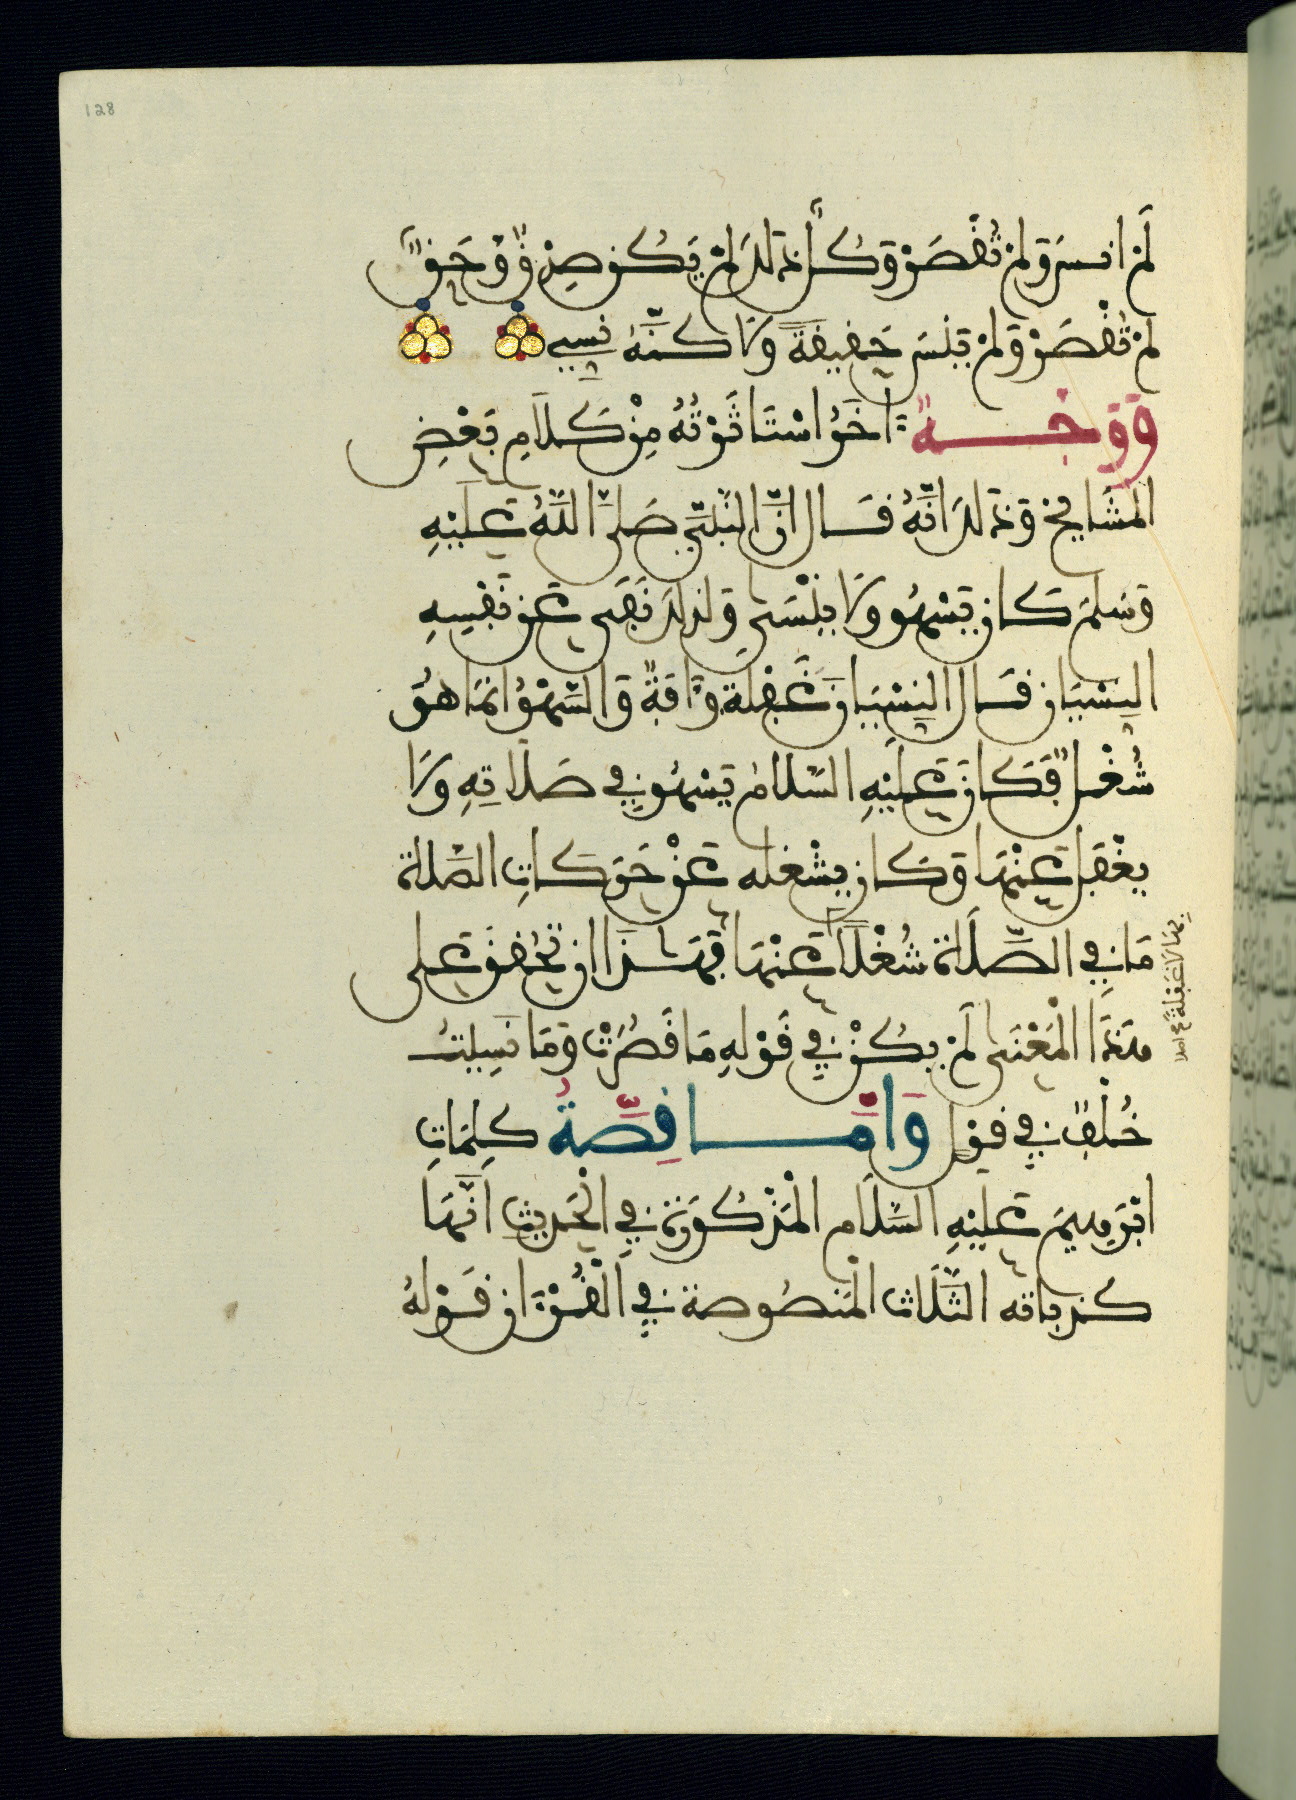 لَمْ انسَ وَلَمْ تُقْصَرْ وَكُلُّ ذَلِكَ لَمْ يَكُن صِدْقٌ وَحَقٌّ
لَمْ تُقْصَرْ وَلَمْ يَنْسَ حَقِيقَةً وَلَاكنَّهُ نَسِيَ
وَوَجْـــهٌ اخَرُ اسْتَاثَرْتُهُ مِنْ كَلَامِ بَعْضِ
المَشَايِخِ وَذَلِكَ انَّهُ قَــالَ انَّ النَّبِيَّ صَلَّى اللَّهُ عَلَيْهِ
وَسَلَّمَ كَانَ يَسْهُو وَلَا يَنْسَى وَلِذلِكَ نَفَى عَن نَفْسِهِ
النِسْيَانَ قَالَ النِسْيَانَ غَفْلَةٌ وَءَافَةٌ وَالسَّهْوُ انَّمَا هُوَ
شُغْلٌ فَكَانَ عَلَيْهِ السَّلَامُ يَسْهُو فِي صَلَاتِهِ وَلَا
يَغْفَلُ عَنْهَا وَكَانَ يشْغله عَنْ حَرَكَاتِ الصَّلاة
مَا فِي الصَّلَاةِ شُغْلاً عَنْهَا فَهَــذَا ان تَحَقَّقَ عَلى
بِهَا لَا غَفْلَةً صح اصلا
هَذَا الْمَعْنَى لَمْ يَكُنْ فِي قَوْلِهِ مَا قَصُرَتْ وَمَا نَسِيتُ
خُلْفٌ فِي قَوْلٍ وَامَّـــا قِصَّةُ كَلِمَاتِ
ابْرَهِيمَ عَلَيْهِ السَّلَامُ الْمَذْكُورَة فِي الْحَدِيثِ انَّهَا
كذباته الثَّلَاث الْمَنصُوصة فِي الْقُرْءَانِ قَوْلهُ
128